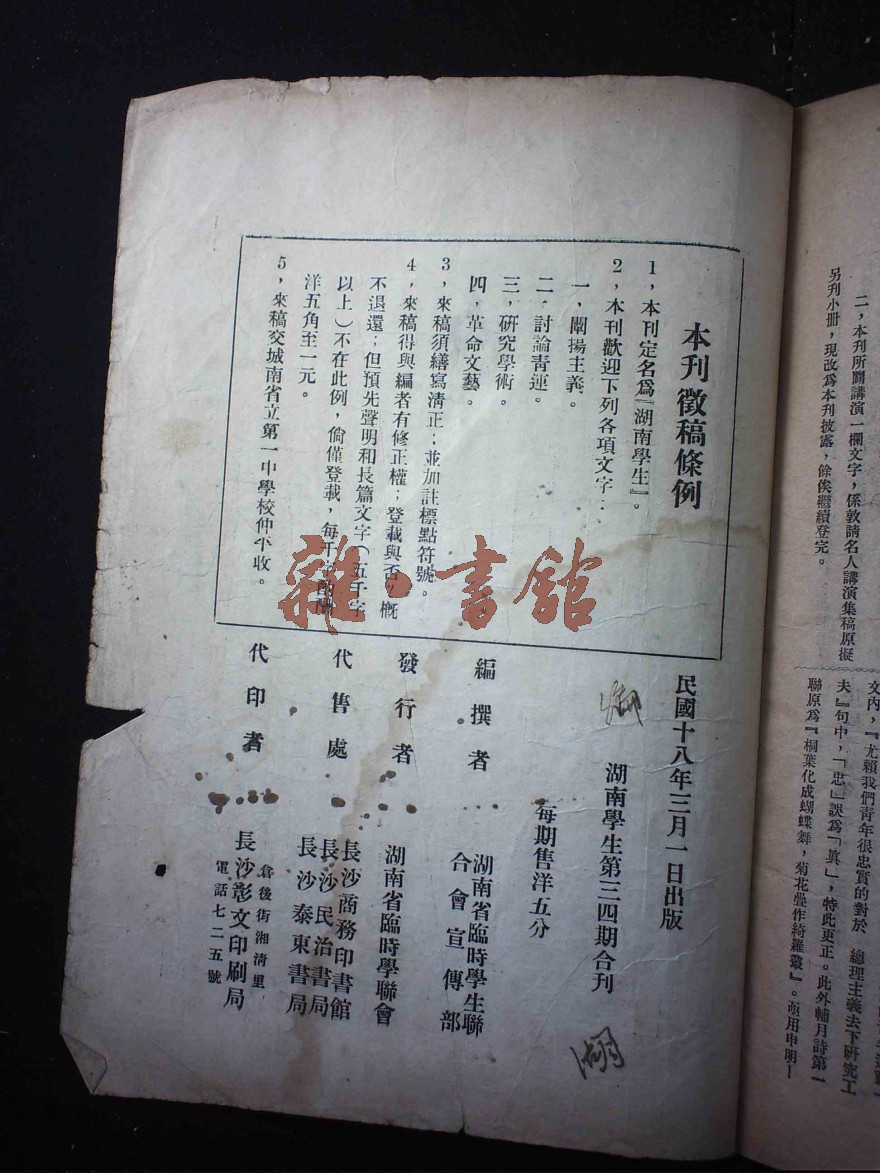 二，本刊所闢講演一欄文字，係敦請名人講演集稿原擬
另刊小冊，現改為本刊披露，餘俟繼續登完。
文內，『尤賴我們青年很忠實的對於　總理主義去下研究工
夫』句中，「忠」誤為「眞」，特此更正。此外輔月詩第一
聯原為『桐葉化成蝴蝶舞，菊花疊作綺羅叢』。亟用申明！
本刊徵稿條例
1，本刊定名爲『湖南學生』。
2，本刊歡迎下列各項文字：
一，闡揚主義。
二，討論青運。
三，研究學術。
四，革命文藝。
3，來稿須繕寫清正；並加註標點符號。
4，來稿得與編者有修正權；登載與否，概
不退還；但預先聲明和長篇文字（五千字
以上）不在此例，倘僅登載，每千字酌酬
洋五角至一元。
5，來稿交城南省立第一中學校仲平收。
民國十八年三月一日出版
湖南學生第三四期合刊
每期售洋五分
編撰者　湖南省臨時學生聯
合會宣傳部
發行者　湖南省臨時學聯會
代售處　長沙商務印書館
長沙民治書局
長沙泰東書局
代印者　倉後街湘清里
長沙彰文印刷局
電話七二五號
雜·書館